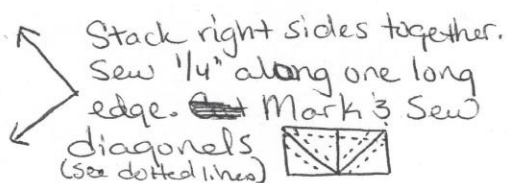 Stack right sides together.
Sew 1/4" along one long
edge. Mark & Sew
diagonels
(see dotted lines)